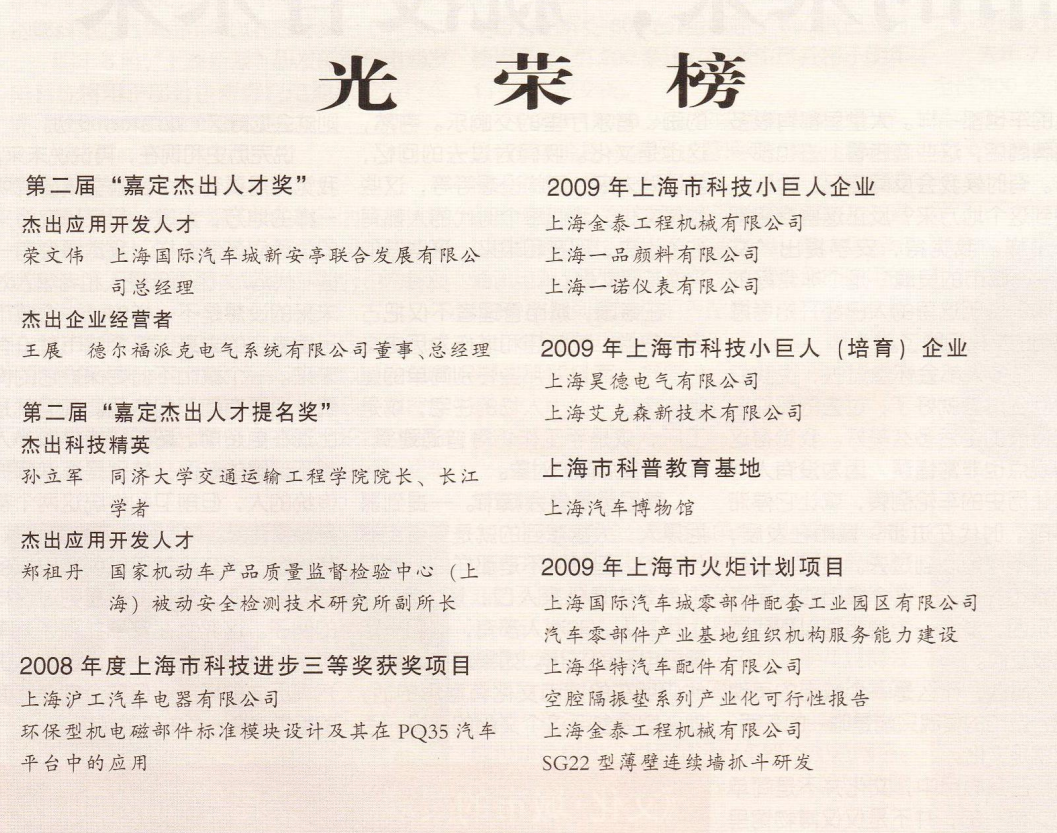 光 荣 榜
第二届 “嘉定杰出人才奖”
杰出应用开发人才
荣文伟 上海国际汽车城新安亭联合发展有限公
司总经理
杰出企业经营者
王展 德尔福派克电气系统有限公司董事、总经理
第二届 “嘉定杰出人才提名奖”
杰出科技精英
孙立军 同济大学交通运输工程学院院长、长江
学者
杰出应用开发人才
郑祖丹 国家机动车产品质量监督检验中心（上
海）被动安全检测技术研究所副所长
2008 年度上海市科技进步三等奖获奖项目
上海沪工汽车电器有限公司
环保型机电磁部件标准模块设计及其在 PQ35 汽车
平台中的应用
2009 年上海市科技小巨人企业
上海金泰工程机械有限公司
上海一品颜料有限公司
上海一诺仪表有限公司
2009 年上海市科技小巨人（培育）企业
上海昊德电气有限公司
上海艾克森新技术有限公司
上海市科普教育基地
上海汽车博物馆
2009 年上海市火炬计划项目
上海国际汽车城零部件配套工业园区有限公司
汽车零部件产业基地组织机构服务能力建设
上海华特汽车配件有限公司
空腔隔振垫系列产业化可行性报告
上海金泰工程机械有限公司
SG22 型薄壁连续墙抓斗研发